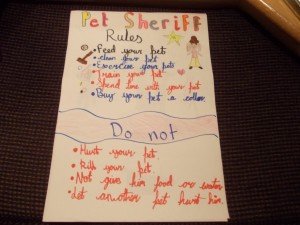 Pet Sheriff
Rules
• Feed your pet
• clean your pet
• Exercise your pets
• Train your pet
• Spend time with your pet
• Buy your pet a collar
Do not
• Hurt your pet.
• kill your pet.
• Not give him food or water
• Let another pet hurt him.